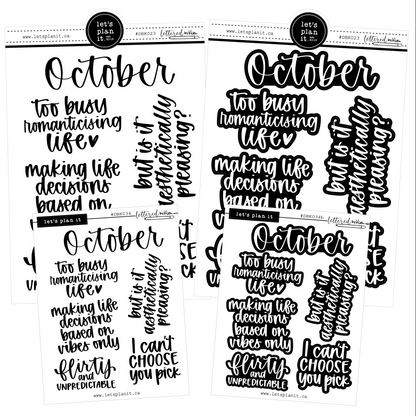 let's
plan
it.
www.letsplanit.ca
#DBMO23
lettered mom
October
too busy
romanticising
life
making life
decisions
based on
but is it
aesthetically
pleasing?
let's
plan
it.
www.letsplanit.ca
#DBMO23
lettered mom
October
too busy
romanticising
life
making life
decisions
based on
but is it
aesthetically
pleasing?
let's plan it
lettered mom
October
too busy
romanticising
life
making life
decisions
based on
vibes only
flirty
and
UNPREDICTABLE
but is it
aesthetically
pleasing?
I can't
CHOOSE
you pick
www.letsplanit.ca
let's plan it
lettered mom
October
too busy
romanticising
life
making life
decisions
based on
vibes only
flirty
and
UNPREDICTABLE
but is it
aesthetically
pleasing?
I can't
CHOOSE
you pick
www.letsplanit.ca